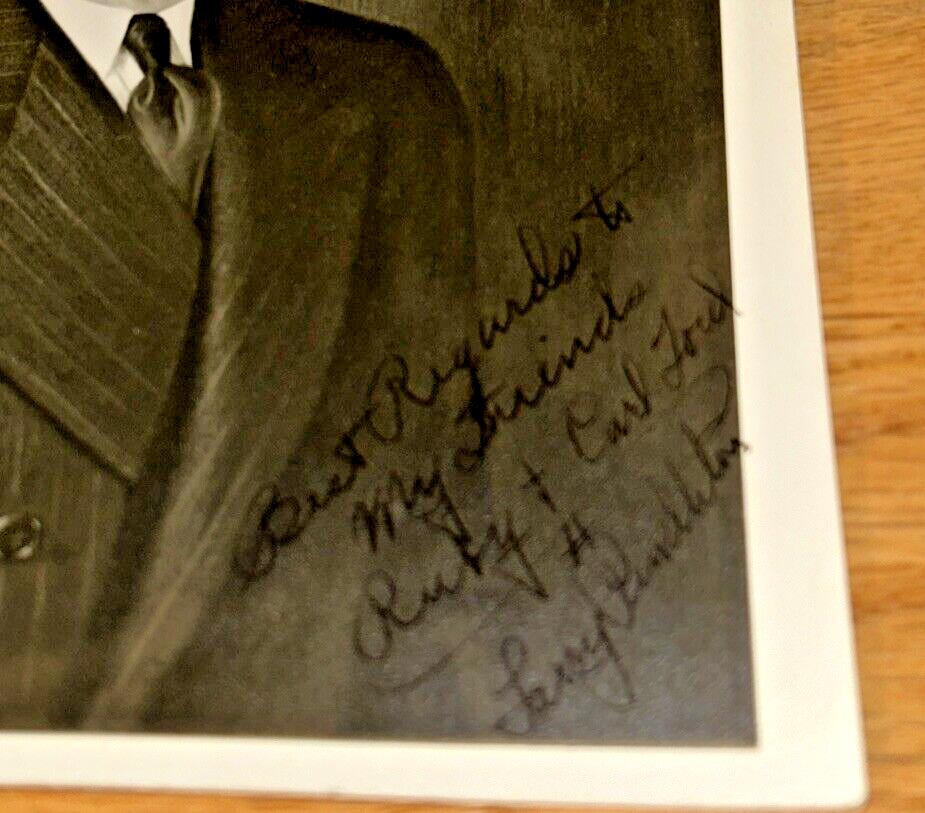 Best Regards to
My Friends
Ruby + Carl Ford
Larry Pendleton